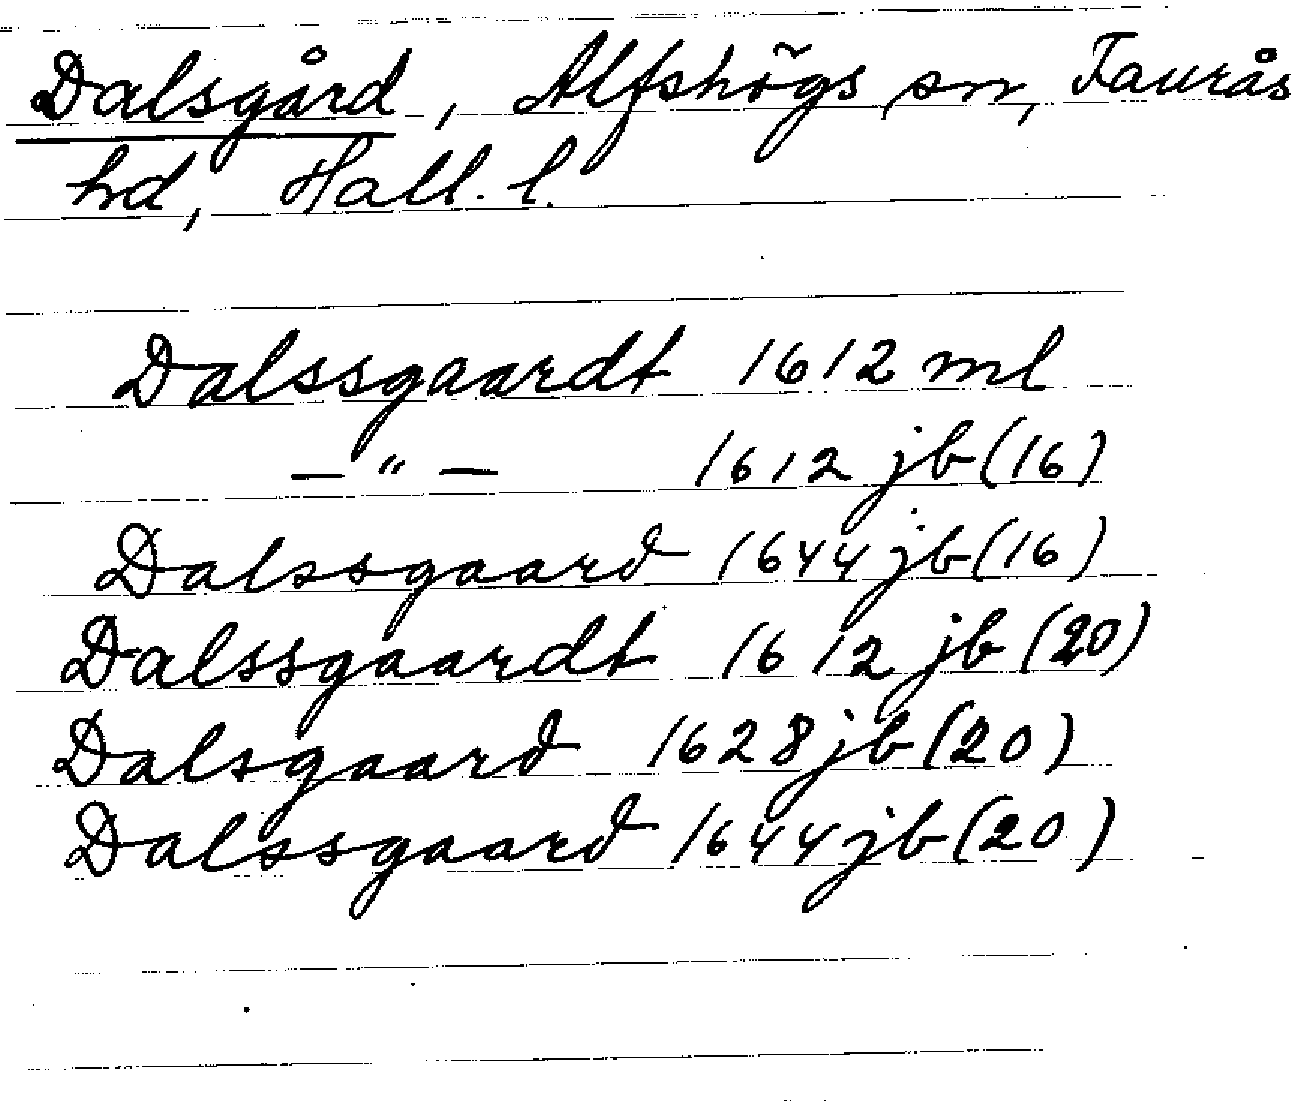 Dalsgård, Alfshögs sn, Faurås
hd, Hall. l.
Dalssgaardt 1612 ml
— " — 1612 jb (16)
Dalssgaard 1644 jb (16)
Dalssgaardt 1612 jb (20)
Dalsgaard 1628 jb (20)
Dalssgaard 1644 jb (20)